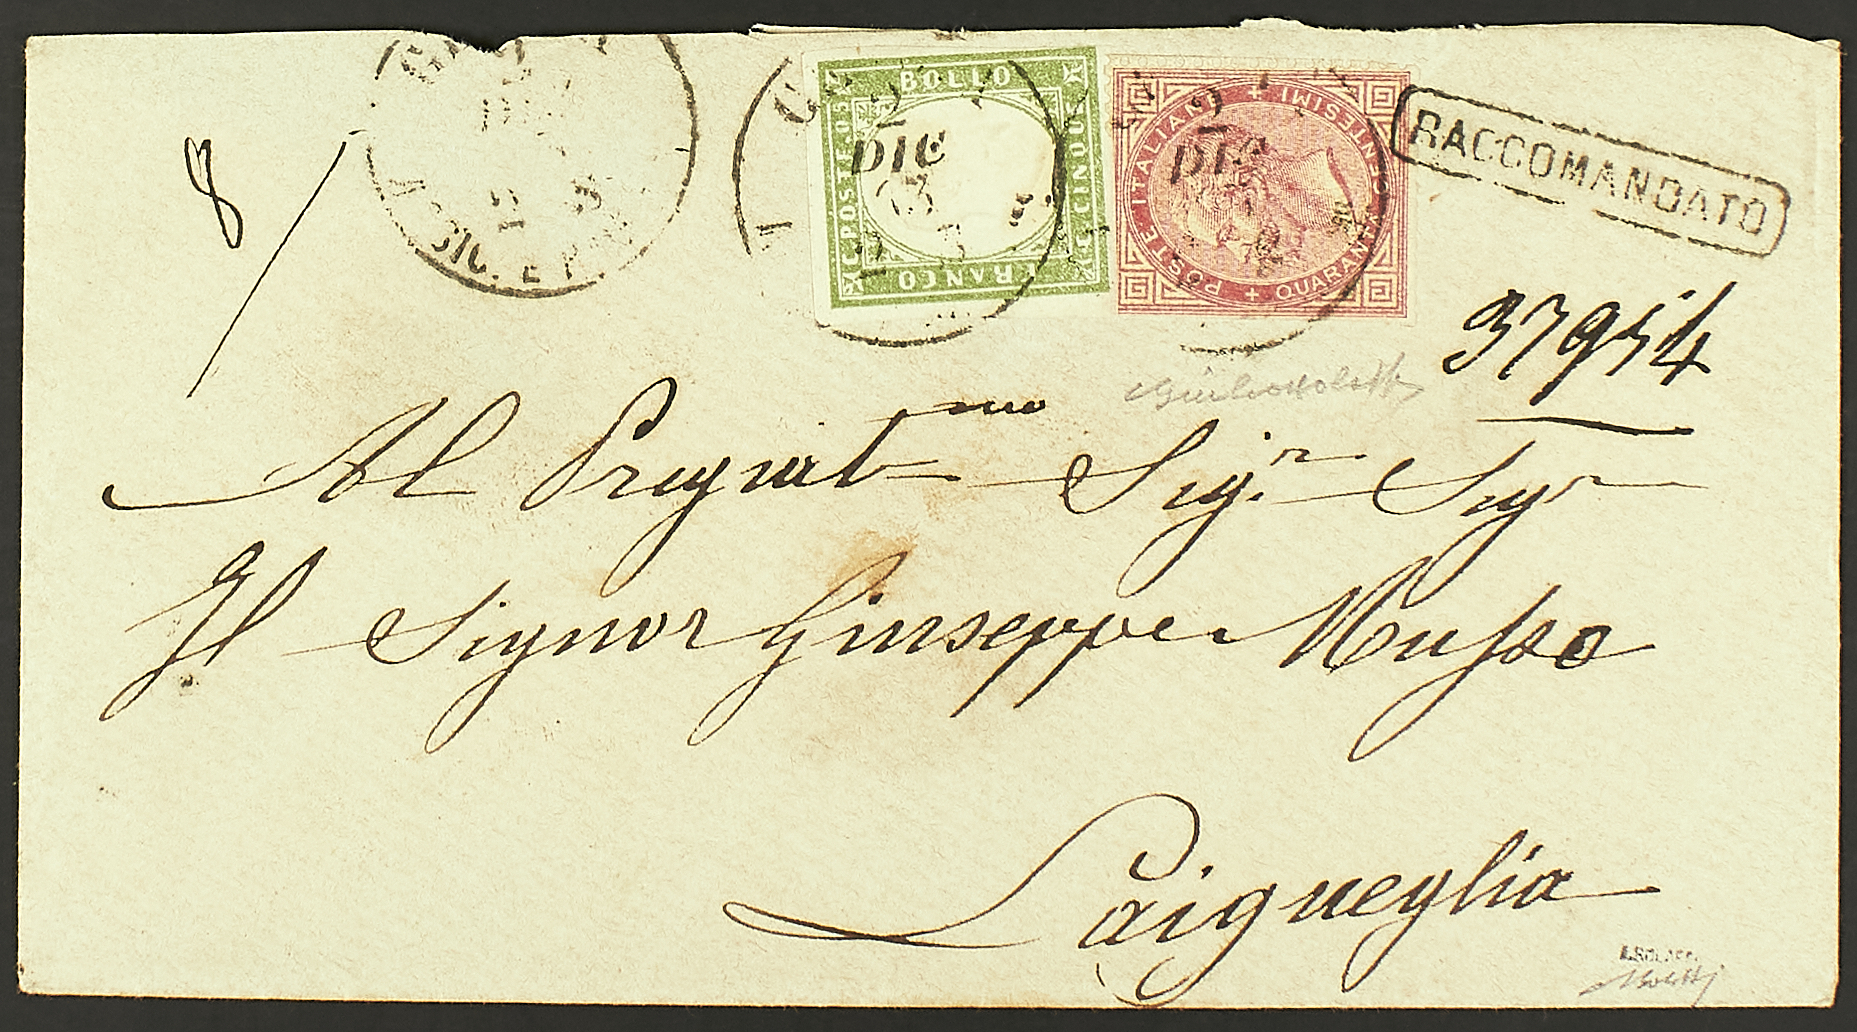 BOLLO
C. POSTE. 05
C. CINQUE
FRANCO
2
DIC
63
POSTE ITALIANE
+ QUARANTA CENTESIMI +
2
DIC
RACCOMANDATO
8
37954
Al Pregiat mo Sigr. Sigr
Il Signor Giuseppe Musso
Laigueglia